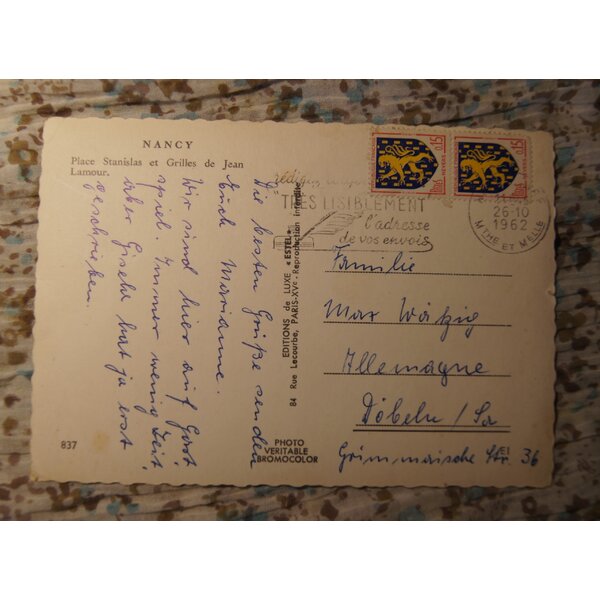 NANCY
Place Stanislas et Grilles de Jean
Lamour.
Die besten Grüße senden
Euch Marianne.
Wir sind hier auf Gast-
spiel. Immer wenig Zeit,
aber Gisela hat ja erst
geschrieben.
837
PHOTO
VERITABLE
BROMOCOLOR
EDITIONS de LUXE « ESTEL »
84 Rue Lecourbe, PARIS-XVe - Reproduction interdite
0,15
0,15
TRÈS LISIBLEMENT
l'adresse
de vos envois
26-10
1962
MTHE ET MELLE
Familie
Max Wätzig
Allemagne
Döbeln / Sa
Grimmaische Str. 36
EI